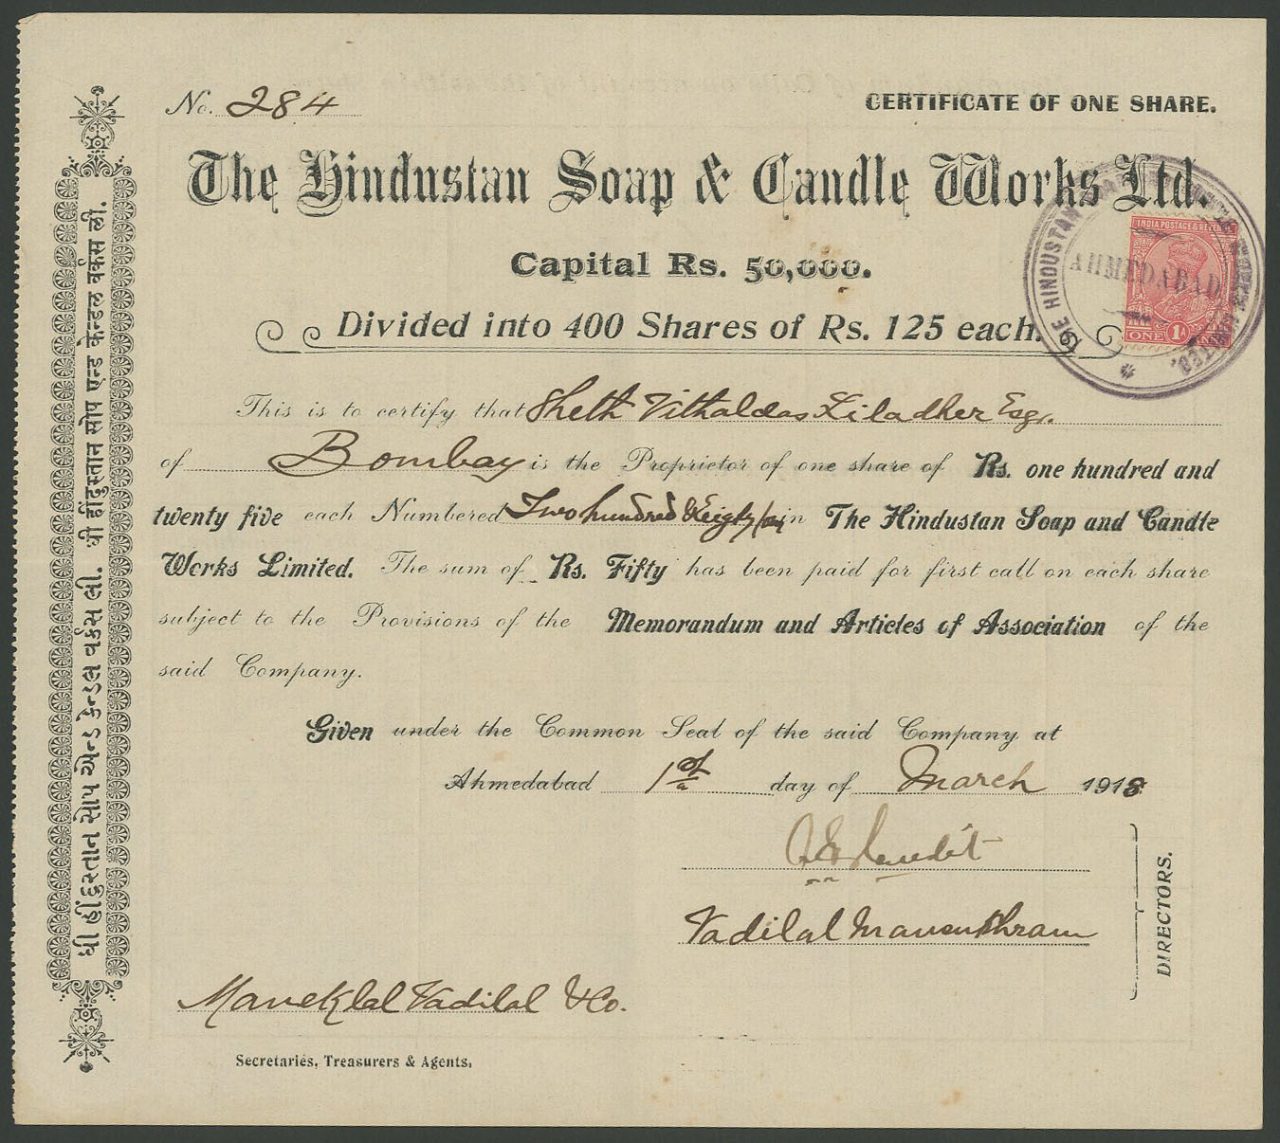 No. 284
CERTIFICATE OF ONE SHARE.
The Hindustan Soap & Candle Works Ltd.
Capital Rs. 50,000.
Divided into 400 Shares of Rs. 125 each.
THE HINDUSTAN SOAP & CANDLE WORKS LIMITED.
AHMEDABAD
INDIA POSTAGE & REVENUE
ONE 1A
This is to certify that Sheth Vithaldas Liladher Esqr.
of Bombay is the Proprietor of one share of Rs. one hundred and
twenty five each Numbered Two hundred & Eighty four in The Hindustan Soap and Candle
Works Limited. The sum of Rs. Fifty has been paid for first call on each share
subject to the Provisions of the Memorandum and Articles of Association of the
said Company.
Given under the Common Seal of the said Company at
Ahmedabad 1st day of March 1918
Vadilal Mansukhram
DIRECTORS.
Maneklal Vadilal & Co.
Secretaries, Treasurers & Agents.
ધી હીંદુસ્તાન સોપ એન્ડ કેન્ડલ વર્કસ લી. धी हींदुस्तान सोप एन्ड केन्डल वर्कस ली.